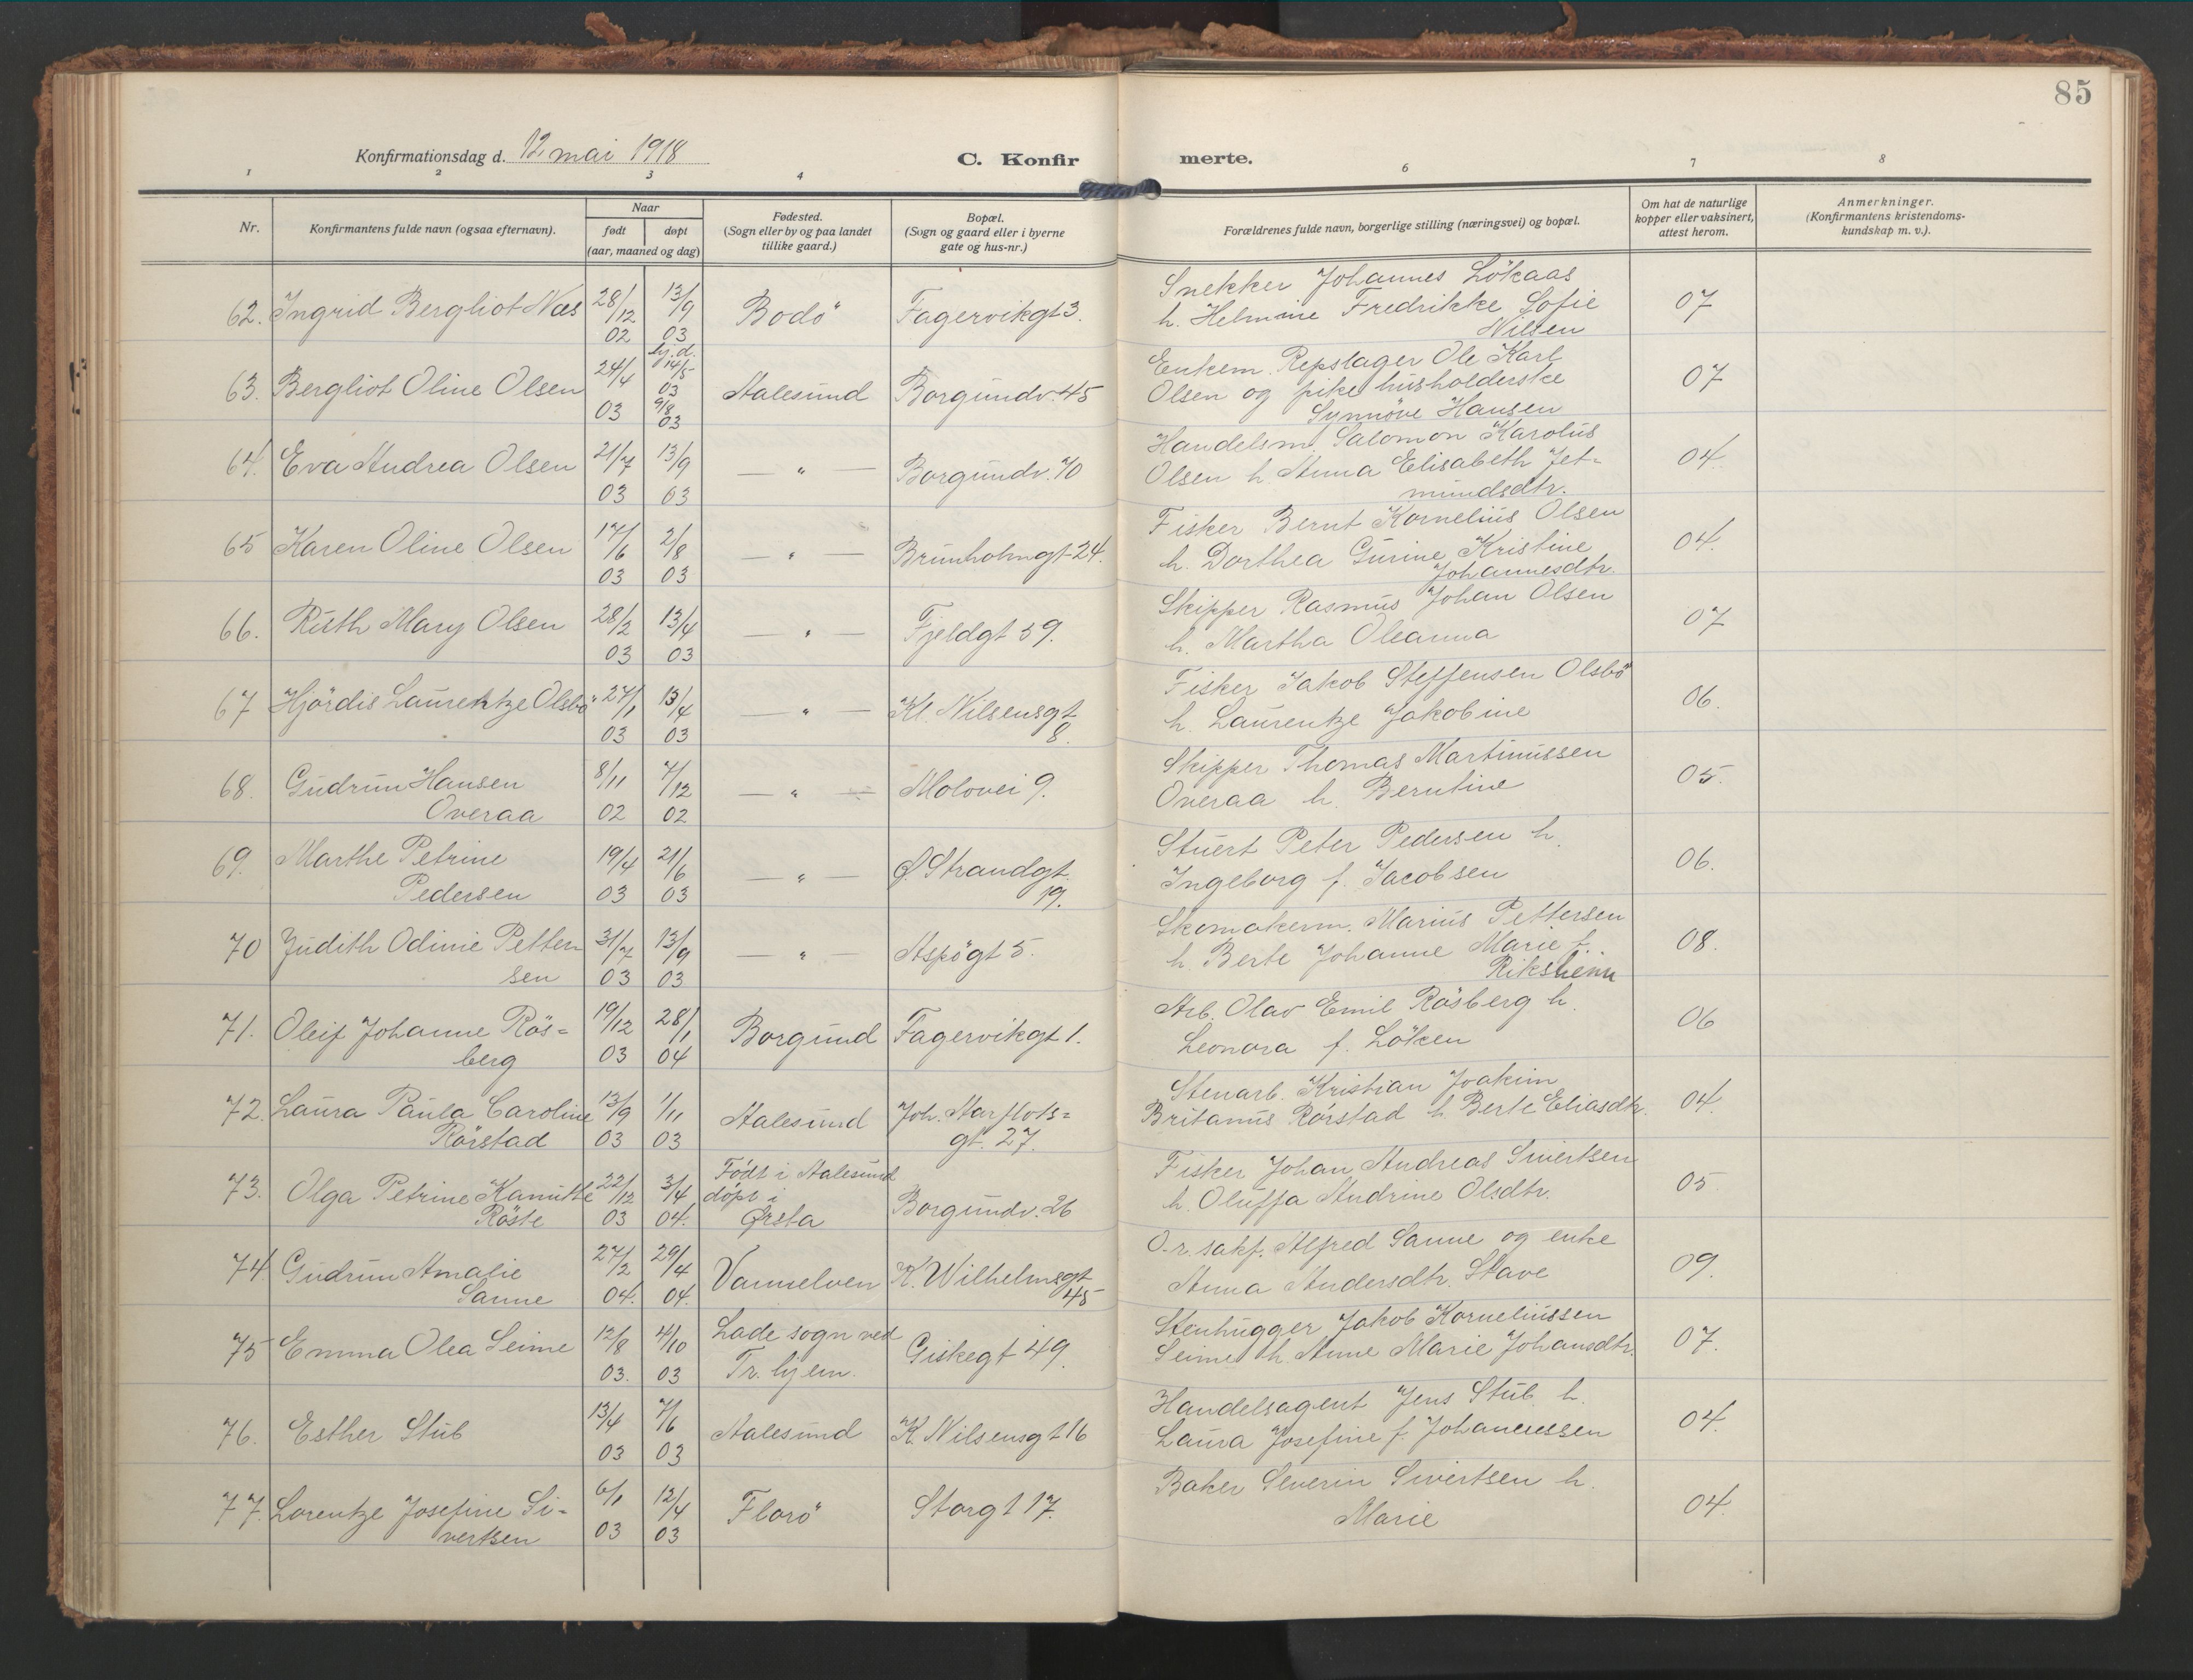 85
Konfirmationsdag d. 12 mai 1918
C. Konfirmerte.
1 2 3 4 6 7 8
Nr.
Konfirmantens fulde navn (ogsaa efternavn).
Naar
født døpt
(aar, maaned og dag)
Fødested.
(Sogn eller by og paa landet
tillike gaard.)
Bopæl.
(Sogn og gaard eller i byerne
gate og hus-nr.)
Forældrenes fulde navn, borgerlige stilling (næringsvei) og bopæl.
Om hat de naturlige
kopper eller vaksinert,
attest herom.
Anmerkninger.
(Konfirmantens kristendoms-
kundskap m. v.).
62. Ingrid Bergliot Næs 28/12 02 13/9 03 Bodö Fagervikgt 3.
Snekker Johannes Lökaas
h. Helmine Fredrikke Sofie
Nilsen
07
63. Bergliot Oline Olsen 24/4 03 hj. d. 14/5 03 9/8 03 Aalesund Borgundv. 45
Enkem. Repslager Ole Karl
Olsen og pike husholderske
Synnöve Hansen
07
64. Eva Andrea Olsen 21/7 03 13/9 03 — " — Borgundv. 70
Handelsm. Salomon Karolus
Olsen h. Anna Elisabeth Jet-
mundsdtr.
04.
65 Karen Oline Olsen 17/6 03 2/8 03 — " — Brunholmgt 24.
Fisker Bernt Kornelius Olsen
h. Dorthea Gurine Kristine
Johannesdtr.
04.
66. Ruth Mary Olsen 28/2 03 13/4 03 — " — Fjeldgt 59.
Skipper Rasmus Johan Olsen
h. Martha Oleanna
07
67 Hjördis Laurentze Olsbö 27/1 03 13/4 03 — " — Kl. Nilsensgt
8.
Fisker Jakob Steffensen Olsbö
h. Laurentze Jakobine
06.
68. Gudrun Hansen
Overaa 8/11 02 7/12 02 — " — Molovei 9.
Skipper Thomas Martinussen
Overaa h. Berntine
05.
69. Marthe Petrine
Pedersen 19/4 03 21/6 03 — " — Ø. Strandgt.
19.
Stuert Peter Pedersen h.
Ingeborg f. Jacobsen
06.
70 Judith Odinie Petter-
sen 31/7 03 13/9 03 — " — Aspögt 5.
Skomakerm. Marius Pettersen
h. Berte Johanne Marie f.
Riksheim
08.
71. Oleif Johanne Rös-
berg 19/12 03 28/1 04 Borgund Fagervikgt 1.
Arb. Olav Emil Rösberg h.
Leonora f. Löken
06
72. Laura Paula Caroline
Rörstad 13/9 03 1/11 03 Aalesund Joh. Aarflots-
gt. 27.
Stenarb. Kristian Joakim
Britanus Rörstad h. Berte Eliasdtr.
04.
73. Olga Petrine Kamitte
Röste 22/12 03 3/4 04. Födt i Aalesund
döpt i
Ørsta Borgundv. 26
Fisker Johan Andreas Sivertsen
h. Oluffa Andrine Olsdtr.
05.
74. Gudrun Amalie
Sanne 27/2 04. 29/4 04. Vannelven K. Wilhelmsgt
45
O.r. sakf. Alfred Sanne og enke
Anna Andersdtr. Stave
09.
75 Emma Olea Seime 12/8 03. 4/10 03 Lade sogn ved
Tr. hjem. Giskegt 49.
Stenhugger Jakob Korneliussen
Seime h. Anne Marie Johansdtr.
07.
76. Esther Stub 13/4 03 7/6 03 Aalesund K. Nilsensgt 16
Handelsagent Jens Stub h.
Laura Josefine f. Johannessen
04.
77. Lorentze Josefine Si-
vertsen 6/1 03 12/4 03 Florö Storgt 17.
Baker Severin Sivertsen h.
Marie
04.